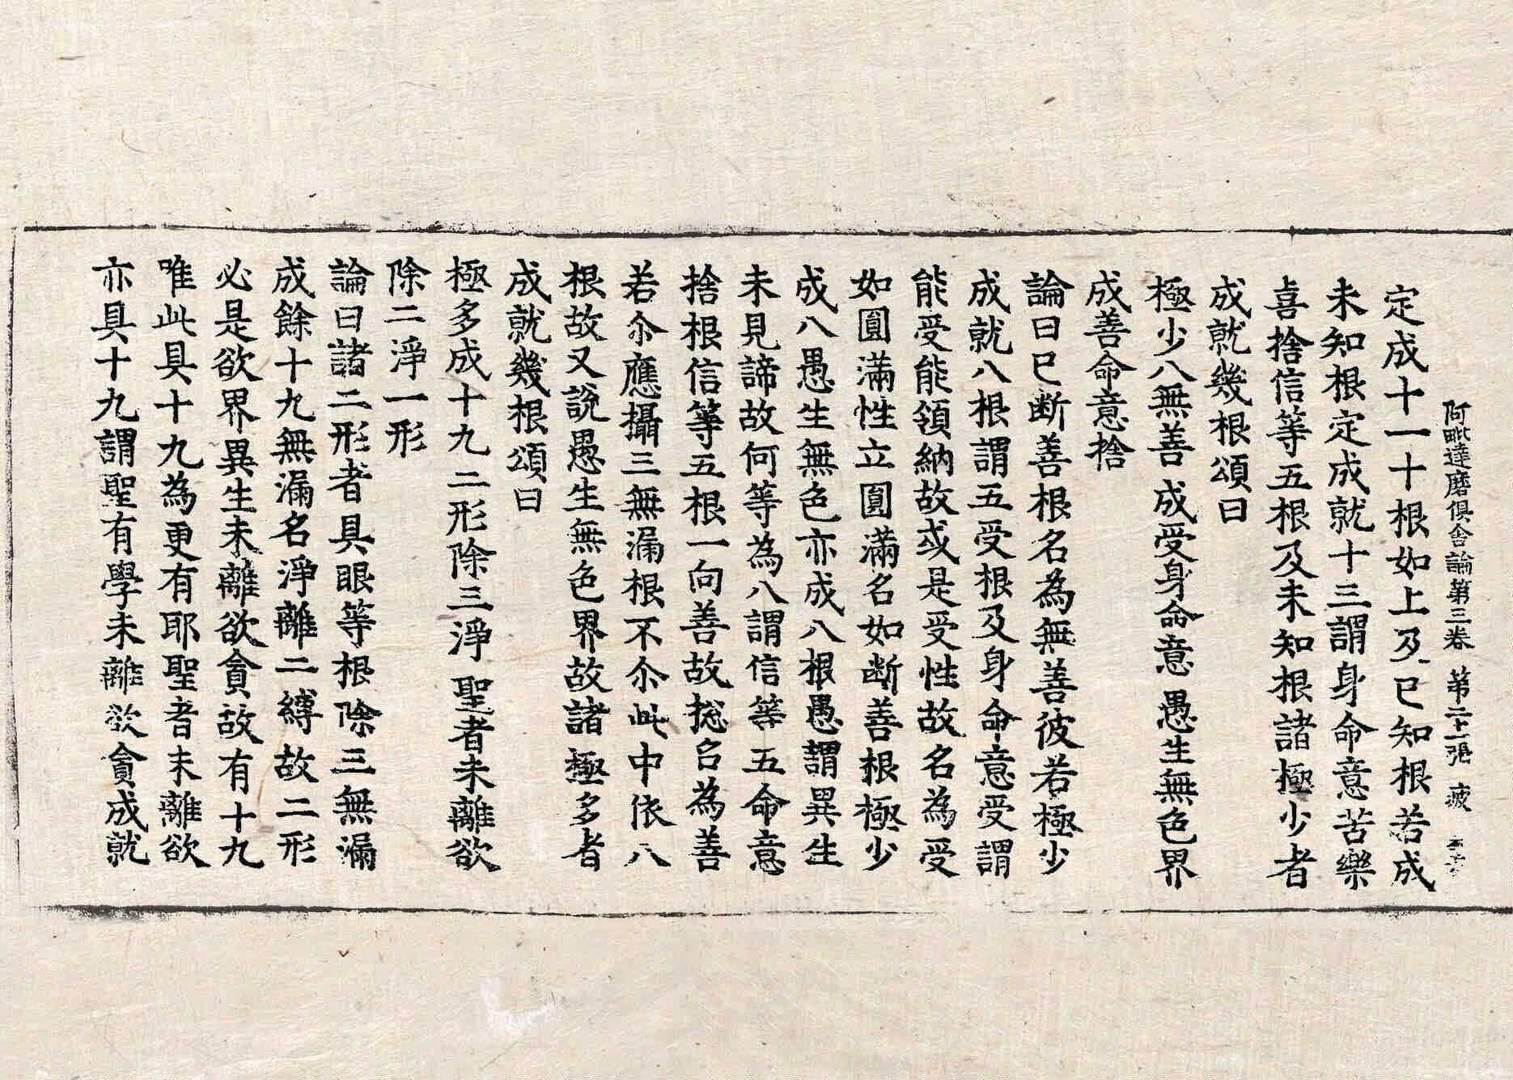 阿毗達磨俱舍論第三卷 第二十一張 疲
定成十一十根如上及已知根若成
未知根定成就十三謂身命意苦樂
喜捨信等五根及未知根諸極少者
成就幾根頌曰
極少八無善 成受身命意 愚生無色界
成善命意捨
論曰已斷善根名為無善彼若極少
成就八根謂五受根及身命意受謂
能受能領納故或是受性故名為受
如圓滿性立圓滿名如断善根極少
成八愚生無色亦成八根愚謂異生
未見諦故何等為八謂信等五命意
捨根信等五根一向善故捴名為善
若尒應攝三無漏根不尒此中依八
根故又說愚生無色界故諸極多者
成就幾根頌曰
極多成十九 二形除三淨 聖者未離欲
除二淨一形
論曰諸二形者具眼等根除三無漏
成餘十九無漏名淨離二縛故二形
必是欲界異生未離欲貪故有十九
唯此具十九為更有耶聖者未離欲
亦具十九謂聖有學未離欲貪成就